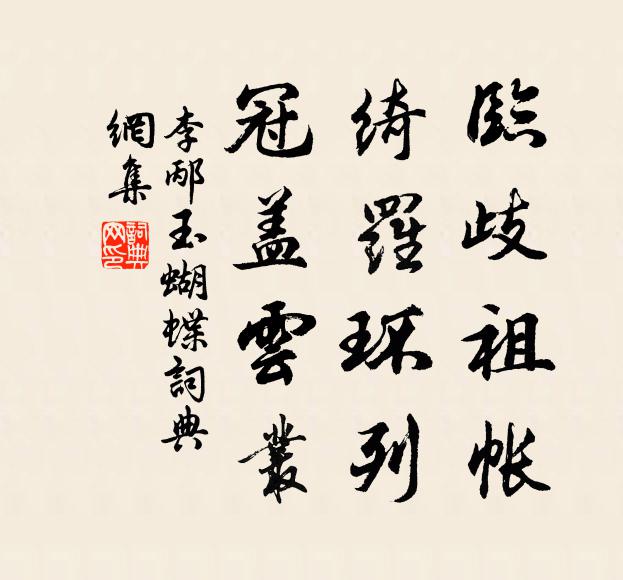 臨歧祖帐
綺羅环列
冠盖雲叢
李邴玉蝴蝶詞典
網集
詞典網印